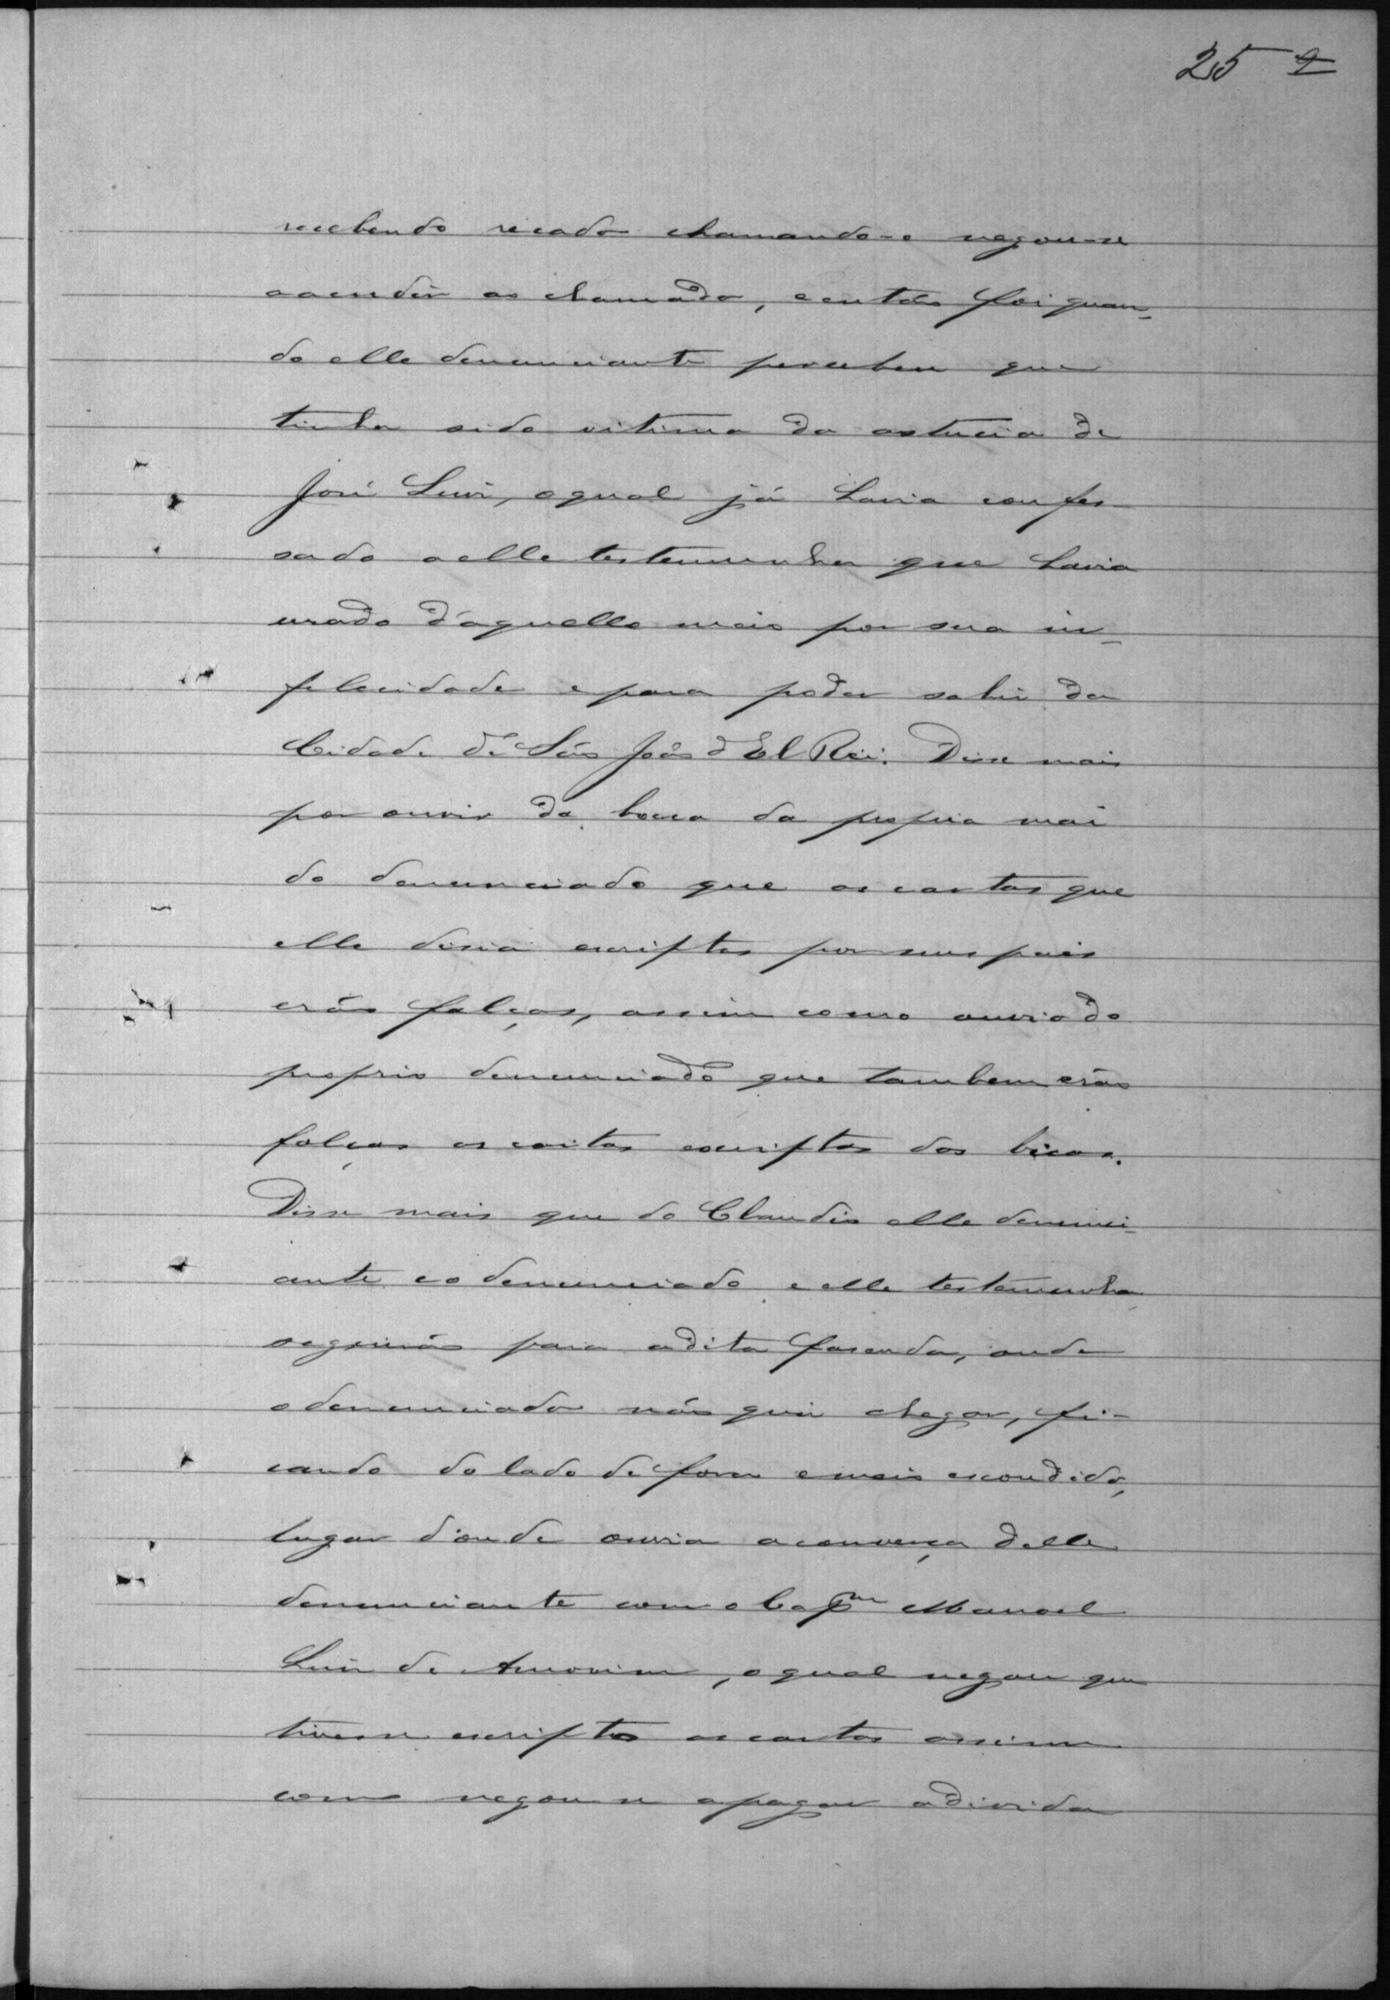 25
recebendo recado chamando-o negou-se
a acudir ao chamado, e então foi quan-
do elle denunciante percebeu que
tinha sido vitima da astucia de
José Luiz, o qual já havia confes-
sado a elle testemunha que havia
usado d'aquelle meio por sua in-
felecidade e para poder sahir da
Cidade de São João d'El Rei. Disse mais
por ouvir da boca da propria mai
do denunciado que as cartas que
elle disia escriptas por seus pais
erão falças, assim como ouvio do
proprio denunciado que tambem erão
falças as cartas escriptas dos bicas.
Disse mais que do Claudio elle denunci-
ante e o denunciado e elle testemunha
seguirão para a dita fasenda, onde
o denunciado não quis chegar, fi-
cando do lado de fora e meio escondido,
lugar d'onde ouvia a converça delle
denunciante com o Capm Manoel
Luiz de Amorim, o qual negou que
tivesse escripto as cartas assim
como negou-se a pagar a divida